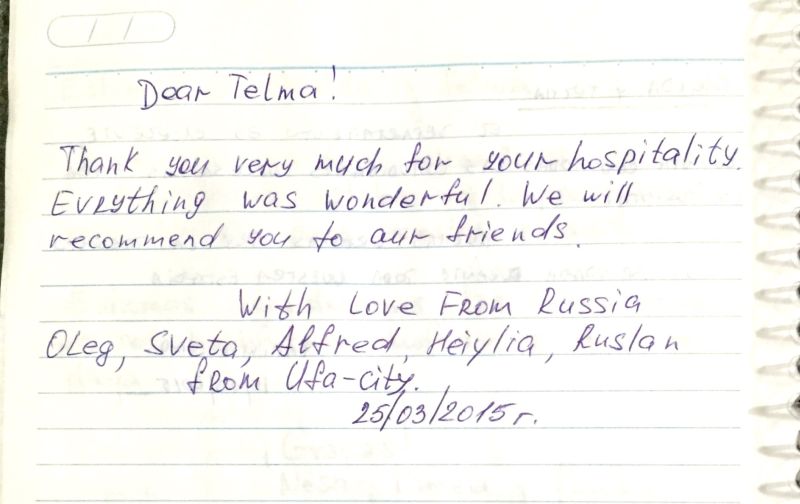 Dear Telma!
Thank you very much for your hospitality.
Evrything was wonderful. We will
recommend you to aur friends.
With Love From Russia
OLeg, Sveta, Alfred, Heiylia, Ruslan
from Ufa-city.
25/03/2015 г.